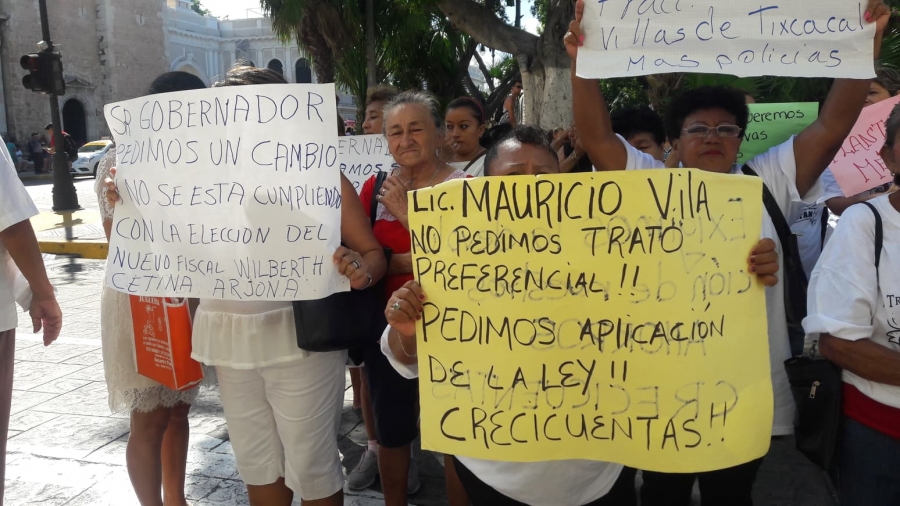 SR GOBERNADOR
PEDIMOS UN CAMBIO
NO SE ESTA CUMPLIENDO
CON LA ELECCION DEL
NUEVO FISCAL WILBERTH
CETINA ARJONA
LIC. MAURICIO VILA
NO PEDIMOS TRATO
PREFERENCIAL.!!
PEDIMOS APLICACIÓN
DE LA LEY!!
CRECICUENTAS.!!
Fracc.
Villas de Tixcacal
Mas policias
queremos